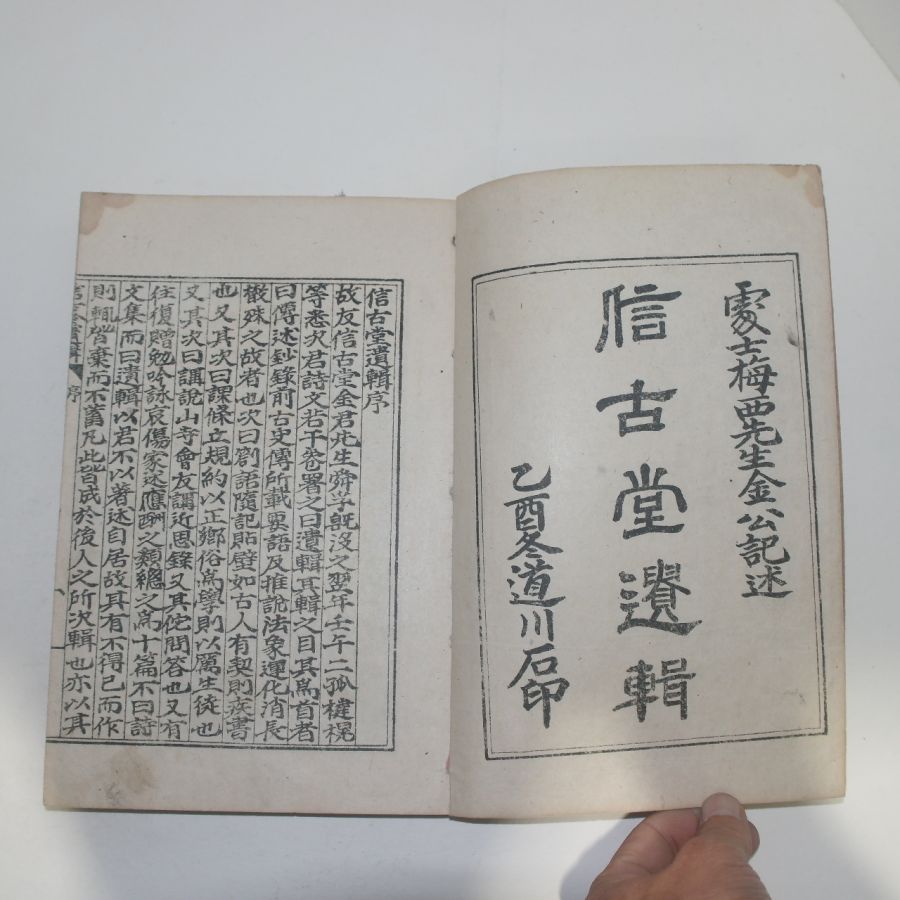 處士梅西先生金公記述
信古堂遺輯
乙酉冬道川石印
信古堂遺輯序
故友信古堂金君此生舜學旣沒之翌年壬午二孤楗榥
等悉次君詩文若干卷署之曰遺輯其輯之目其爲首者
曰僔述鈔錄前古史傳所載要語及推說法象運化消長
殊之故者也次曰劄語隨記貼壁如古人有契則疾書
也又其次曰課條立規約以正鄕俗爲學則以厲生徒也
又其次曰講說山寺會友講近思錄又其佗問答也又有
往復贈勉吟詠哀傷家述應酬之類總之爲十篇不曰詩
文集而曰遺輯以君不以著述自居故其有不得已而作
則輒皆棄而不蓄凡此皆成於後人之所次輯也亦以其
信古堂遺輯 序